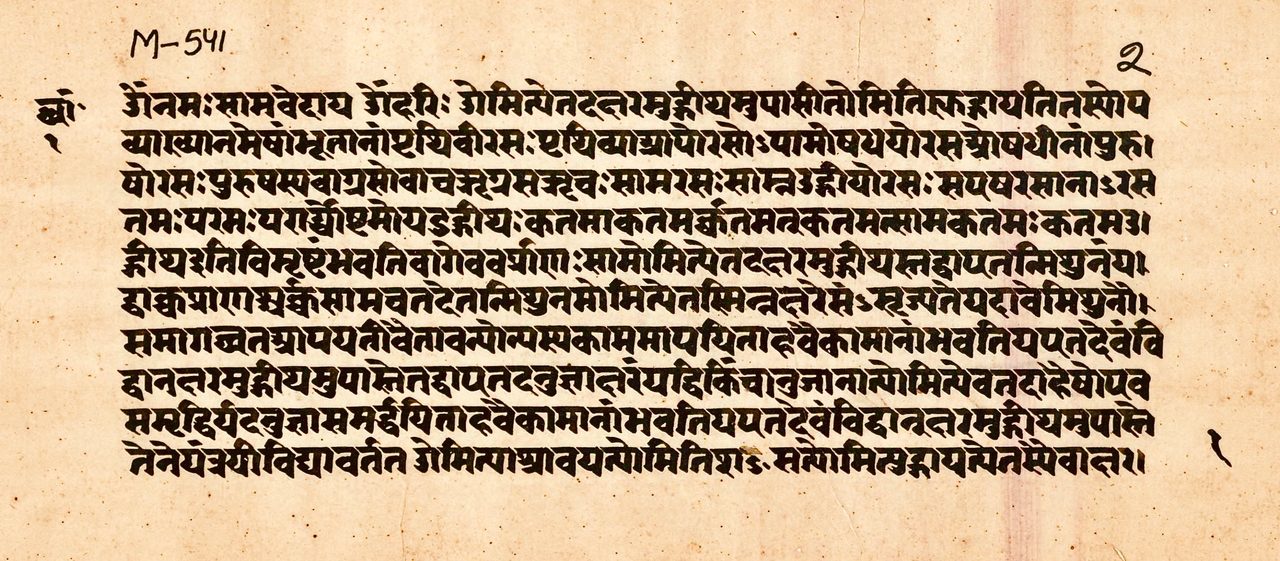 M-541
2
छां॰
१
ॐ नमः सामवेदाय ॐ हरिः ओमित्येतदक्षरमुद्गीथमुपासीतोमितिह्युद्गायतितस्योप
व्याख्यानमेषांभूतानांपृथिवीरसः पृथिव्याआपोरसोऽपामोषधयोरसओषधीनांपुरु।
षोरसः पुरुषस्यवाग्रसोवाचऋग्रसऋचः सामरसः साम्नउद्गीथोरसः सएषरसानाऽरस
तमः परमः परार्द्ध्योष्टमोयउद्गीथः कतमाकतमर्क्कतमत्कतमत्सामकतमः कतमउ।
द्गीथइतिविमृष्टंभवतिवागेवर्क्प्राणः सामोमित्येतदक्षरमुद्गीथस्तद्वाएतन्मिथुनंय।
द्वाक्चप्राणश्चर्क्चसामचतदेतन्मिथुनमोमित्येतस्मिन्नक्षरेसंऽसृज्यतेयदावैमिथुनौ।
समागच्छतआपयतोवैतावन्योन्यस्यकाममापयिताहवैकामानांभवतियएतदेवंवि
द्वानक्षरमुद्गीथमुपास्तेतद्वाएतदनुज्ञाक्षरंयद्धिकिंचानुजानात्योमित्येवतदाहैषोएव
समृद्धिर्यदनुज्ञासमर्द्धयिताहवैकामानांभवतियएतदेवंविद्वानक्षरमुद्गीथमुपास्ते
तेनेयंत्रयीविद्यावर्तत ओमित्याश्रावयत्योमितिशऽसत्योमित्युद्गायत्येतस्यैवाक्षर।
१